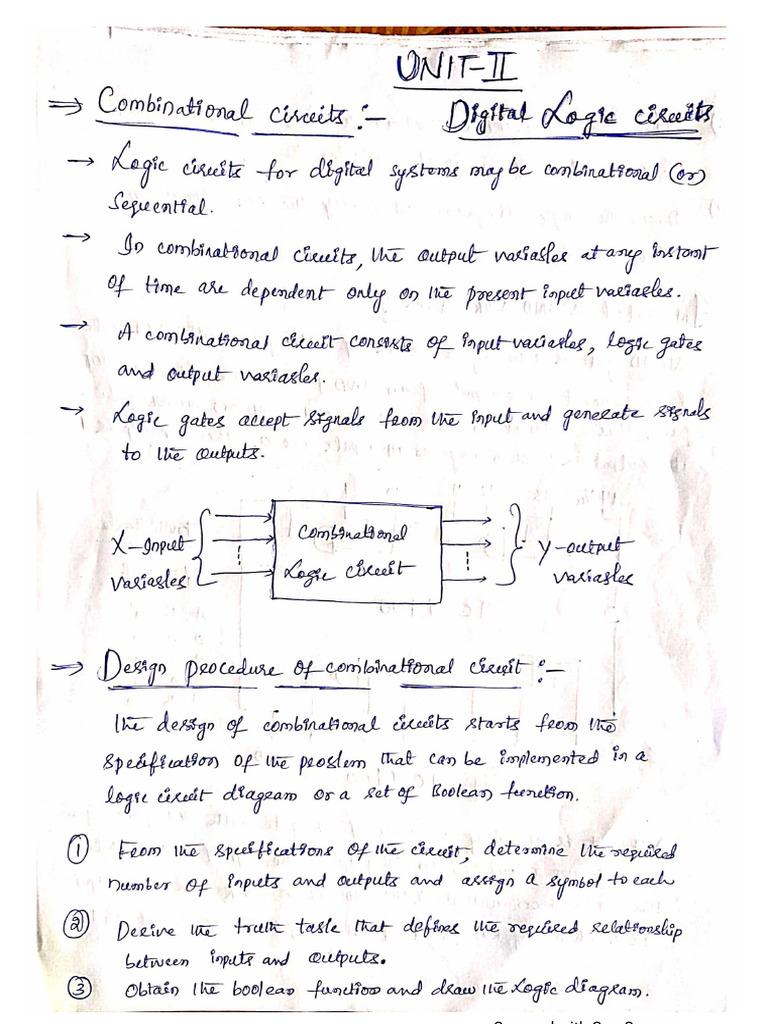 UNIT-II
⇒ Combinational circuits :-
Digital Logic circuits
→ Logic circuits for digital systems may be combinational (or)
Sequential.
→ In combinational circuits, the output variables at any instant
of time are dependent only on the present input variables.
→ A combinational circuit consists of input variables, logic gates
and output variables.
→ Logic gates accept signals from the input and generate signals
to the outputs.
X-Input
variables
Combinational
Logic circuit
Y-output
variables
⇒ Design procedure of combinational circuit :-
The design of combinational circuits starts from the
specification of the problem that can be implemented in a
logic circuit diagram or a set of Boolean function.
① From the specifications of the circuit, determine the required
number of inputs and outputs and assign a symbol to each
② Derive the truth table that defines the required relationship
between inputs and outputs.
③ Obtain the boolean function and draw the Logic diagram.